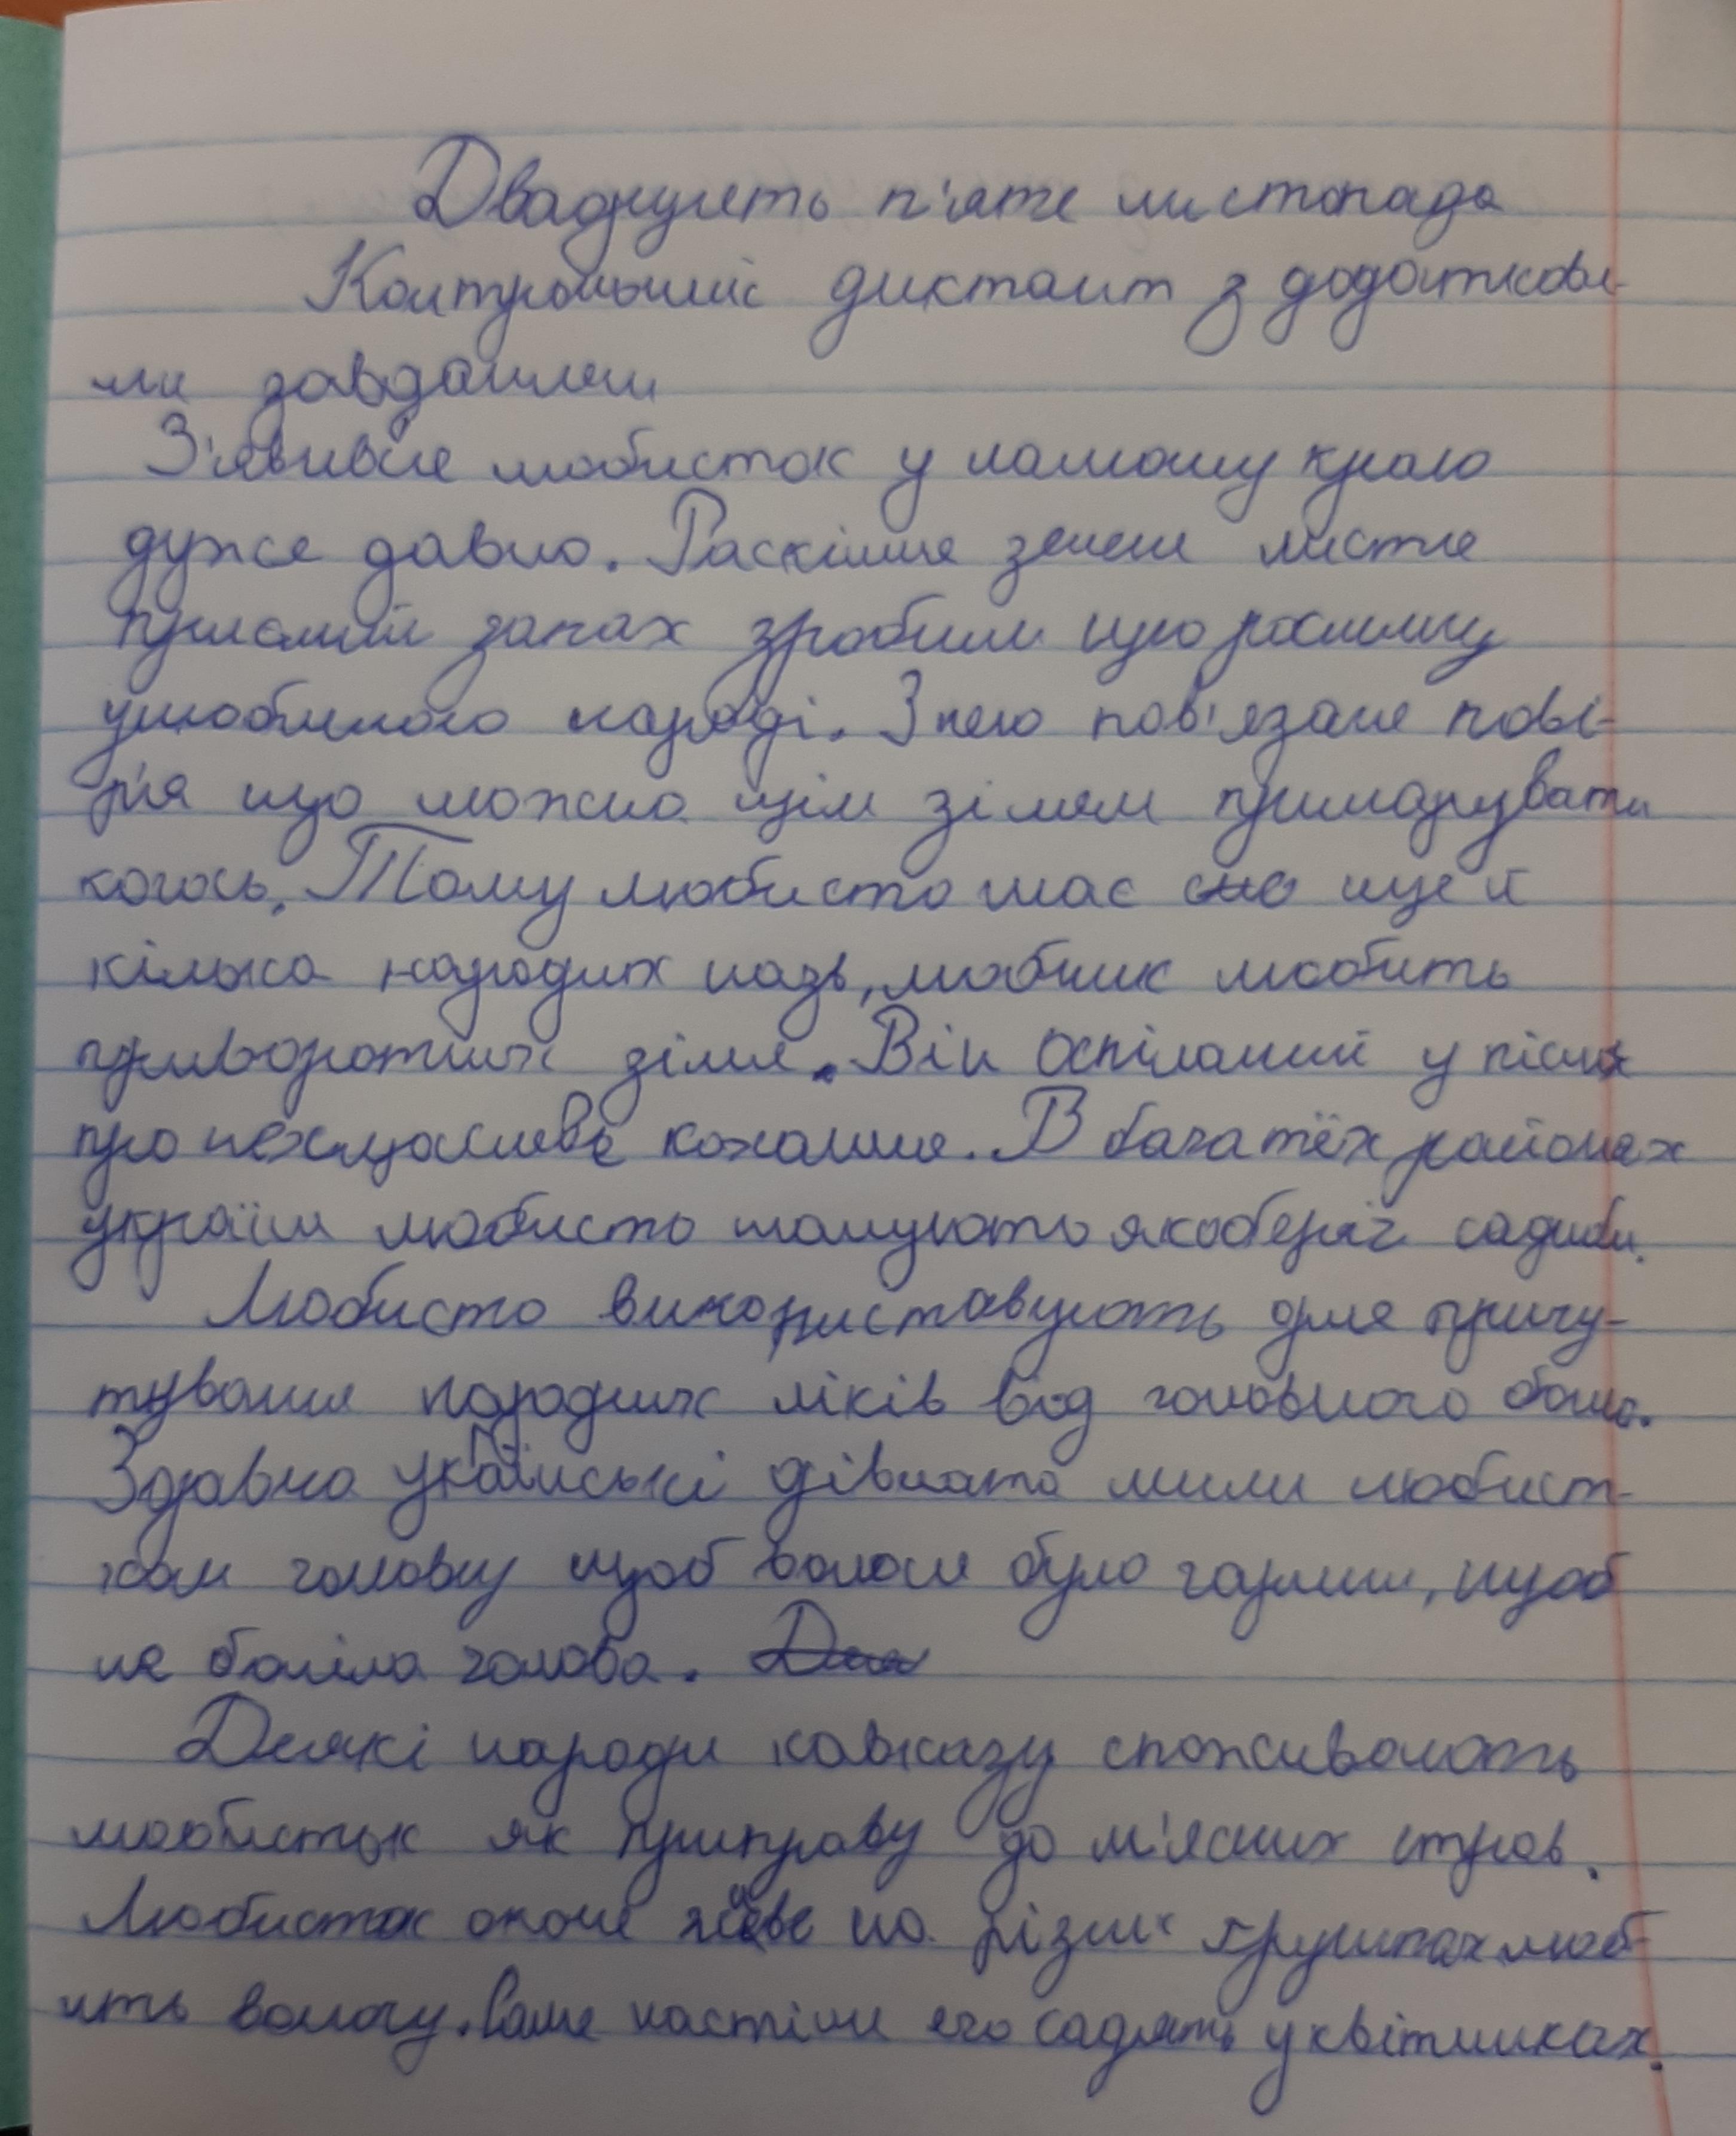 Двадцять п'яте листопада
Контрольний диктант з додаткови-
ми завданнями
З'явився любисток у нашому краю
дуже давно. Раскішне зелене листя
приємний запах зробили цю рослину
улюбленою народі. З нею пов'язане пові-
р'я що можна цім зілям примарувати
когось. Тому любисто має ще й
кілька народих назв, любчик любить
приворотних зілля. Він оспіланий у піснях
про нехщасливе кохання. В багатёх районах
україни любисто шанують якоберіг садиби.
Любисто використавують для пригу-
тування народних ліків від головного болю.
Здавна українські дівчата мили любист-
ком головку щоб волося було гарним, щоб
не боліла голова.
Деякі народи кавказу споживають
любисток як приправу до м'ясних страв.
Любисток охоче живе на різних ґрунтах люб-
ить вологу. частіше его садять у квітниках.